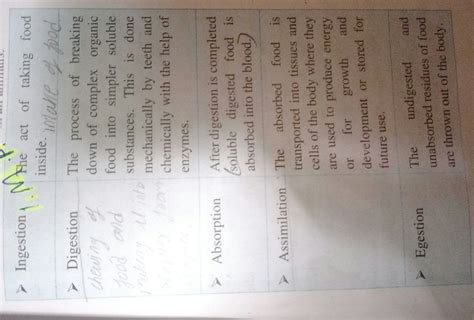 I.M.P
Ingestion The act of taking food
inside. intake of food
Digestion The process of breaking
down of complex organic
food into simpler soluble
substances. This is done
mechanically by teeth and
chemically with the help of
enzymes.
chewing of
food and
into
Absorption After digestion is completed
(soluble digested food is
absorbed into the blood.)
Assimilation The absorbed food is
transported into tissues and
cells of the body where they
are used to produce energy
or for growth and
development or stored for
future use.
Egestion The undigested and
unabsorbed residues of food
are thrown out of the body.